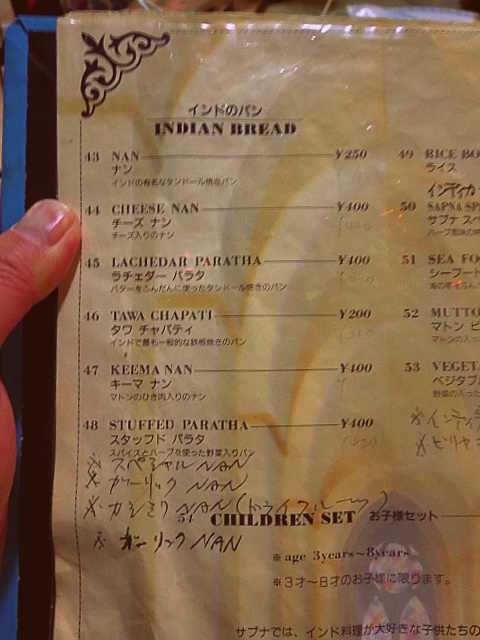 インドのパン
INDIAN BREAD
43 NAN ¥250
ナン
インドの有名なタンドール焼きパン
44 CHEESE NAN ¥400
チーズ ナン
チーズ入りのナン
45 LACHEDAR PARATHA ¥400
ラチェダー パラタ
バターをふんだんに使ったタンドール焼きのパン
46 TAWA CHAPATI ¥200
タワ チャパティ
インドで最も一般的な鉄板焼きのパン
47 KEEMA NAN ¥400
キーマ ナン
マトンのひき肉入りのナン
48 STUFFED PARATHA ¥400
スタッフド パラタ
スパイスとハーブを使った野菜入りパン
※スペシャル NAN
※ガーリック NAN
※カシミリ NAN (ドライフルーツ)
54 CHILDREN SET お子様セット
※オーリック NAN
※ age 3years~8years
※3才~8才のお子様に限ります。
サプナでは、インド料理が大好きな子供たちの
49 RICE BO
ライス
インディカ
50 SAPNA SP
サプナ スペ
51 SEA FO
シーフード
52 MUTTO
マトン ビ
マトンの入っ
53 VEGETA
ベジタブル
野菜の入った
※インディ
※ビリヤ